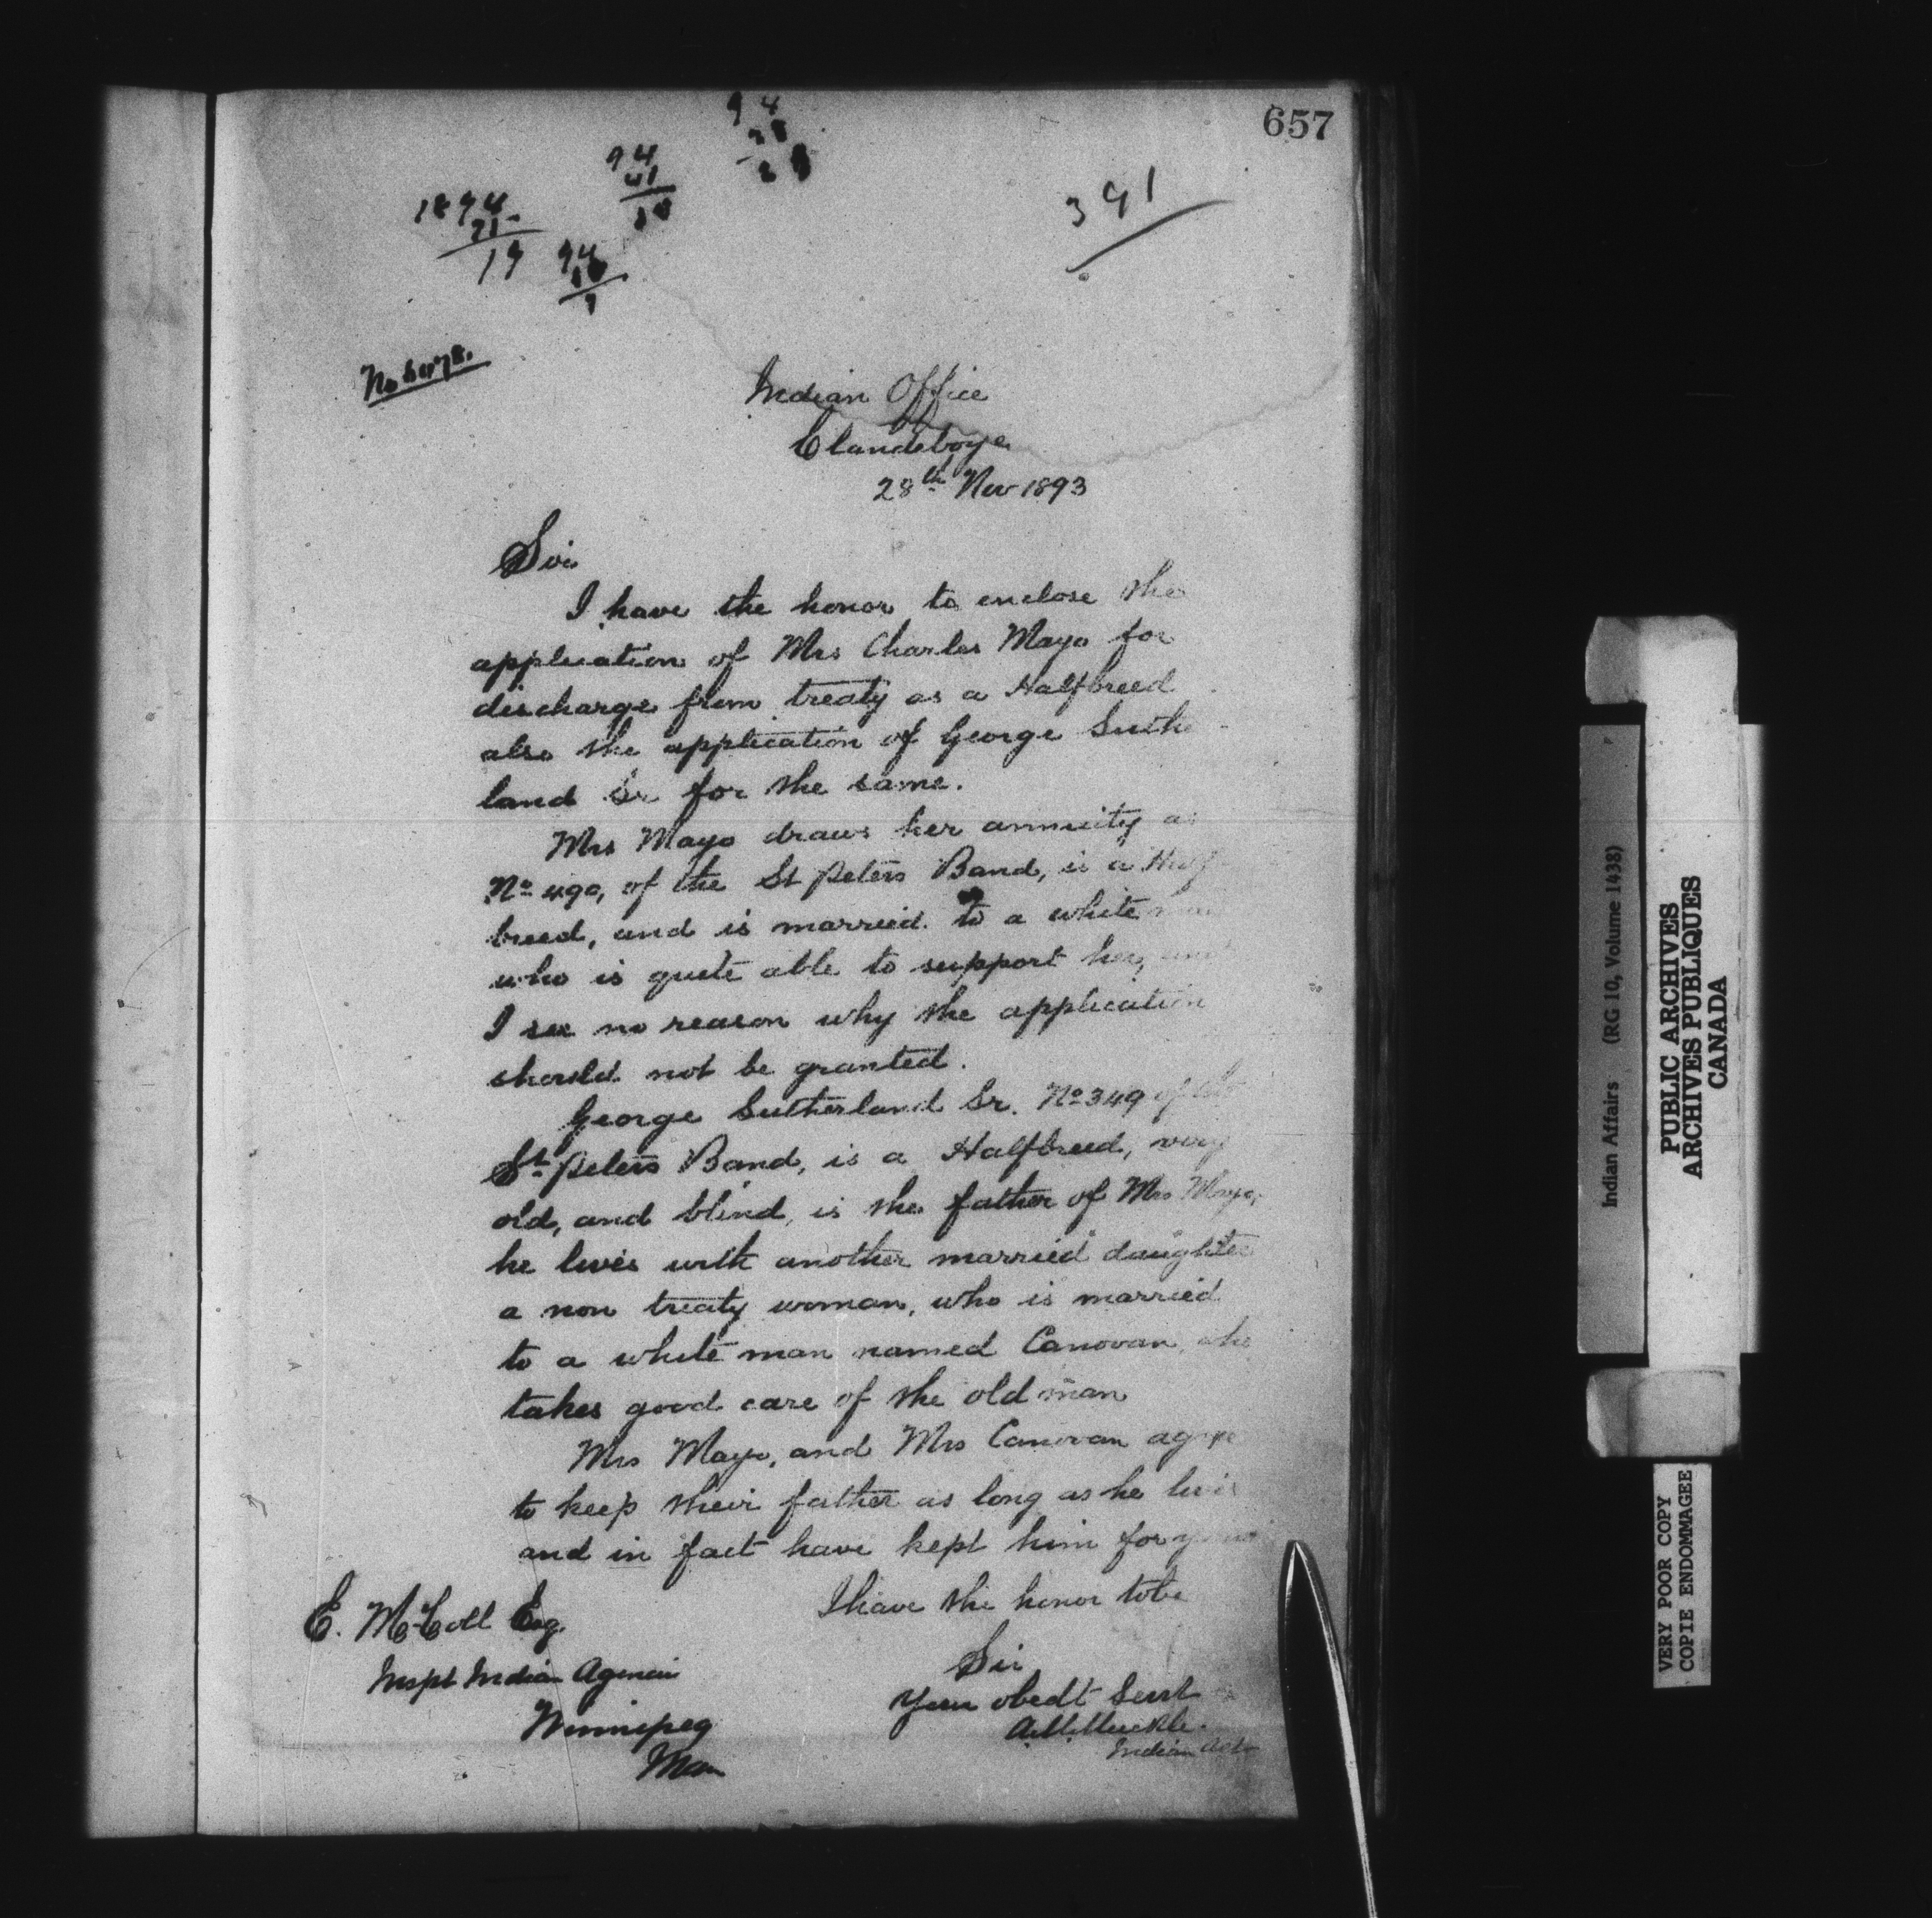 657
94
41
1894
21
19
94
391
Indian Office
Clandeboye
28th Nov 1893
Sir
I have the honor to enclose the
application of Mrs Charles Mayo for
discharge from treaty as a Halfbreed
also the application of George Suthe
land Sr for the same.
Mrs Mayo draws her annuity as
No 490, of the St Peters Band, is a Half
breed, and is married to a white man
who is quite able to support her, and
I see no reason why the application
should not be granted.
George Sutherland Sr. No 349 of the
St. Peters Band, is a Halfbreed, very
old, and blind, is the father of Mrs Mayo,
he lives with another married daughter
a non treaty woman, who is married
to a white man named Canovan, who
takes good care of the old man
Mrs Mayo, and Mrs Canovan agree
to keep their father as long as he lives
and in fact have kept him for
I have the honor to be
Sir
Your obedt Servt
A.M. Muckle.
Indian Agt
E. McColl Esq.
Inspt Indian Agencies
Winnipeg
Man
Indian Affairs (RG 10, Volume 1438)
PUBLIC ARCHIVES
ARCHIVES PUBLIQUES
CANADA
VERY POOR COPY
COPIE ENDOMMAGEE